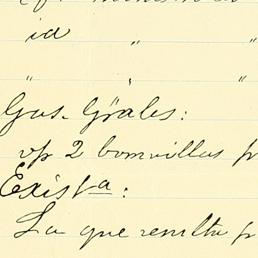 id " "
" " "
Gas. Gràles:
vp 2 bomvillas p
Exista:
La que resulta p